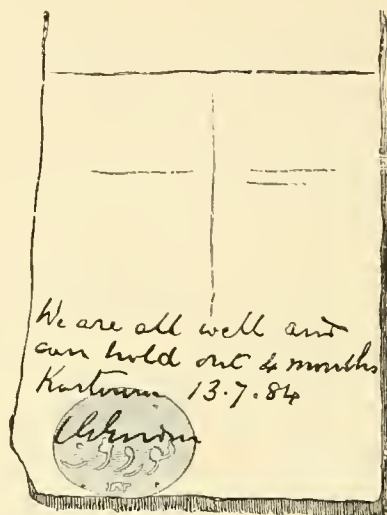 We are all well and
can hold out 4 months
Kartoum 13.7.84